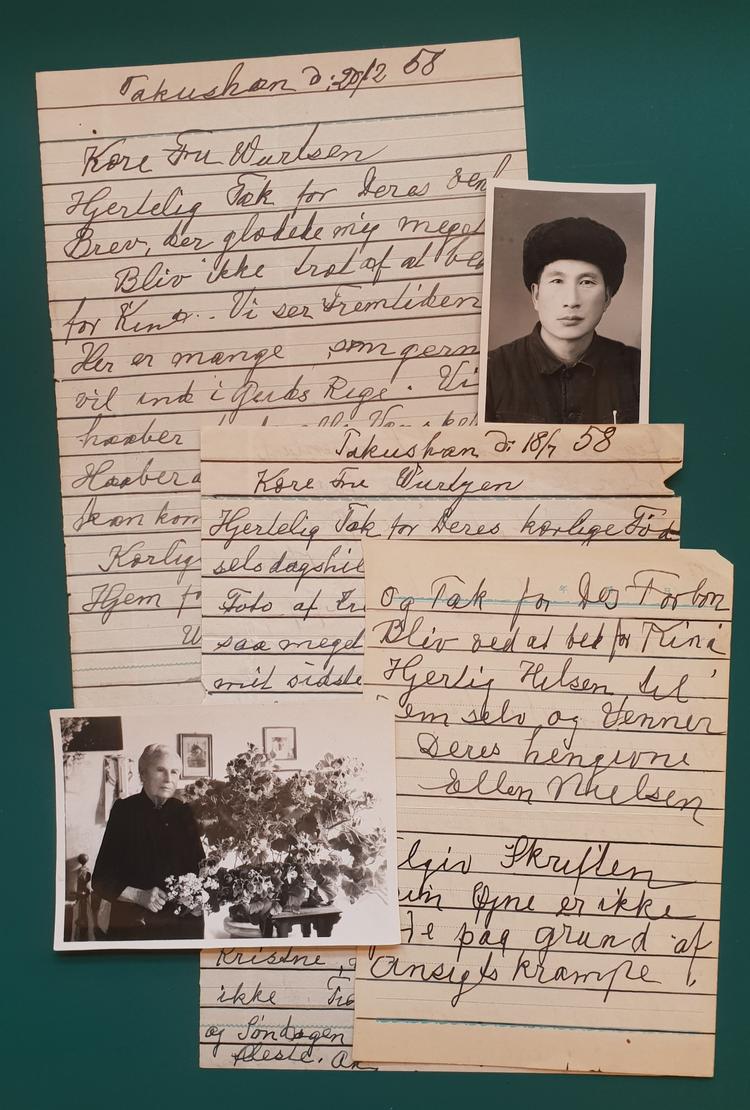 Takushan d: 20/2 58
Kære Fru Wurtsen
Hjertelig Tak for Deres Venl
Brev, der glædede mig meget
Bliv ikke træt af at bed
for Kina. Vi ser Fremtiden
Her er mange, som gern
vil ind i Guds Rige. Vi
haaber
Haaber a
kan kom
Kærlig
Hjem f
Takushan d: 18/7 58
Kære Fru Wurtzen
Hjertelig Tak for Deres kærlige Fød
selsdagshil
Foto af
saa meget
mit sidste
Kristne,
ikke
og Søndagen
fleste. An
og Tak for Des Forbøn
Bliv ved at bed for Kina
Hjertlig Hilsen til
em selv og Venner
Deres hengivne
Ellen Nielsen
lgiv Skriften
min Øjne er ikke
paa grund af
Ansigtskrampe,